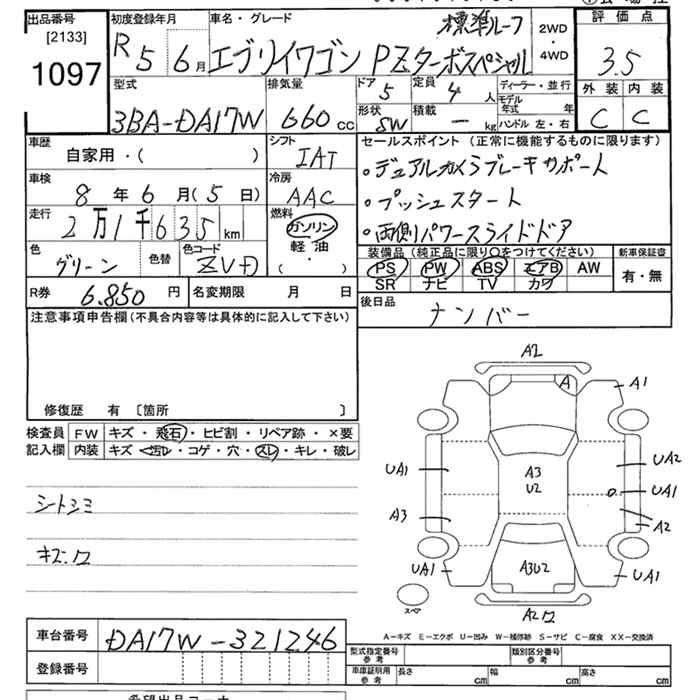 出品番号
[2133]
1097
初度登録年月
R5 6月
車名・グレード
標準ルーフ
エブリイワゴン PZターボスペシャル
2WD
・
4WD
評価点
3.5
外装 内装
C C
型式
3BA-DA17W
排気量
660 cc
ドア
5
定員
4 人
形状
SW
積載
— kg
ディーラー・並行
モデル年式 年
ハンドル 左・右
車歴
自家用・( )
シフト
IAT
車検
8年6月(5日)
冷房
AAC
走行
2万1千635km
燃料
ガソリン
軽油
・( )
色
グリーン
色替
色コード
ZVD
セールスポイント (正常に機能するものに限ります)
・デュアルカメラブレーキサポート
・プッシュスタート
・両側パワースライドドア
装備品 (純正品に限り○をつけてください)
新車保証書
PS PW ABS エアB AW
SR ナビ TV カワ
有・無
R券
6.850円
名変期限 月 日
後日品
ナンバー
注意事項申告欄(不具合内容等は具体的に記入して下さい)
修復歴 有 〔箇所 〕
検査員記入欄
FW キズ・飛石・ヒビ割・リペア跡・×要
内装 キズ・汚れ・コゲ・穴・スレ・キレ・破レ
シートシミ
キズ.ワ
A2
A
A1
UA1
A3
U2
UA2
UA1
A3
A2
UA1
A3U2
UA1
スペア
A2ワ
A-キズ E-エクボ U-凹み W-補修跡 S-サビ C-腐食 XX-交換済
車台番号
DA17W-321246
登録番号
型式指定番号
参考
類別区分番号
参考
車庫証明用
参考
長さ cm
幅 cm
高さ cm